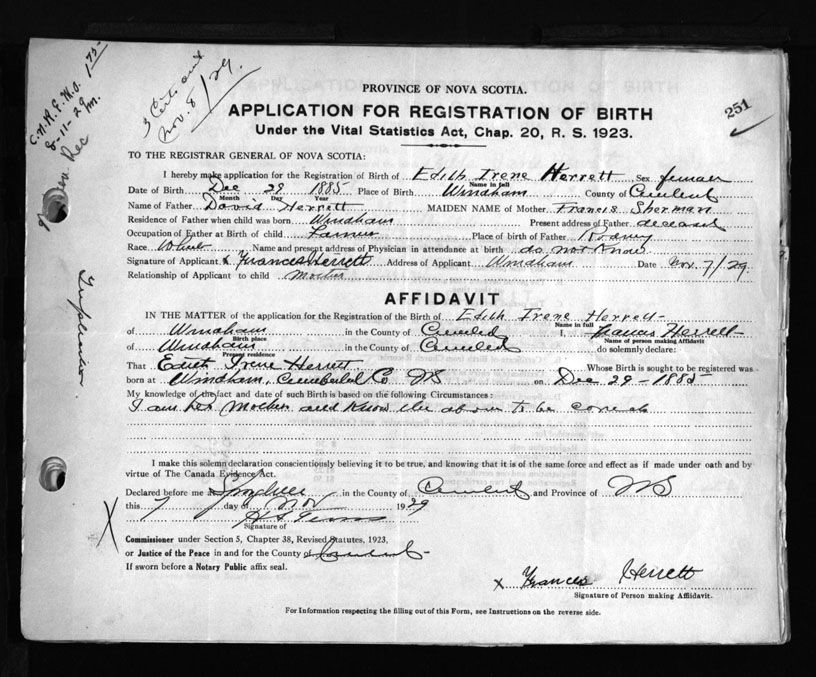 C.M.H.F.W.O. 175
8-11-29
Rec
3 Certs
Nov. 8/29.
PROVINCE OF NOVA SCOTIA.
251
APPLICATION FOR REGISTRATION OF BIRTH
Under the Vital Statistics Act, Chap. 20, R. S. 1923.
TO THE REGISTRAR GENERAL OF NOVA SCOTIA:
I hereby make application for the Registration of Birth of Edith Irene Herrett Sex female
Name in full
Date of Birth Dec 29 1885 Place of Birth Windham County of
Month Day Year
Name of Father David Herrett MAIDEN NAME of Mother Francis Sherman
Residence of Father when child was born Windham Present address of Father deceased
Occupation of Father at Birth of child Farmer Place of birth of Father Rodney
Race White Name and present address of Physician in attendance at birth do not know
Signature of Applicant x Frances Herrett Address of Applicant Windham Date Nov 7/29.
Relationship of Applicant to child Mother
AFFIDAVIT
IN THE MATTER of the application for the Registration of the Birth of Edith Irene Herrett
Name in full
of Windham in the County of I, Francis Herrett
Birth place Name of person making Affidavit
of Windham in the County of do solemnly declare:
Present residence
That Edith Irene Herrett Whose Birth is sought to be registered was
born at Windham, Co NS on Dec 29 - 1885
My knowledge of the fact and date of such Birth is based on the following Circumstances:
I am her Mother and know the above to be
I make this solemn declaration conscientiously believing it to be true, and knowing that it is of the same force and effect as if made under oath and by
virtue of The Canada Evidence Act.
Declared before me at in the County of and Province of NS
this 7 day of Nov 1929
Signature of
X
Commissioner under Section 5, Chapter 38, Revised Statutes, 1923,
or Justice of the Peace in and for the County of
If sworn before a Notary Public affix seal.
x Frances Herrett
Signature of Person making Affidavit.
For Information respecting the filling out of this Form, see Instructions on the reverse side.